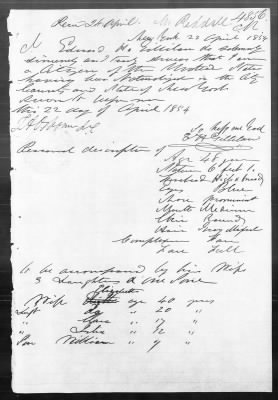 Rec 24 April Mr Riddell 4856
New York 22 April 1854
I Edward H. do solemnly
sincerely and truly swear that I am
a Citizen of the United States
having been Naturalized in the City
County and State of New York
Sworn to before me
this 22 day of April 1854
So help me God
Personal description of
Age 48 years
Stature 6 feet 1
Forehead High & Broad
Eyes Blue
Nose prominent
Mouth Medium
Chin Round
Hair Grey
Complexion Fair
Face Full
to be accompanied by his Wife
3 Daughters & One Son
Elizabeth
Wife age 40 years
" 20 "
" 17 "
" 12 "
Son William " 9 "